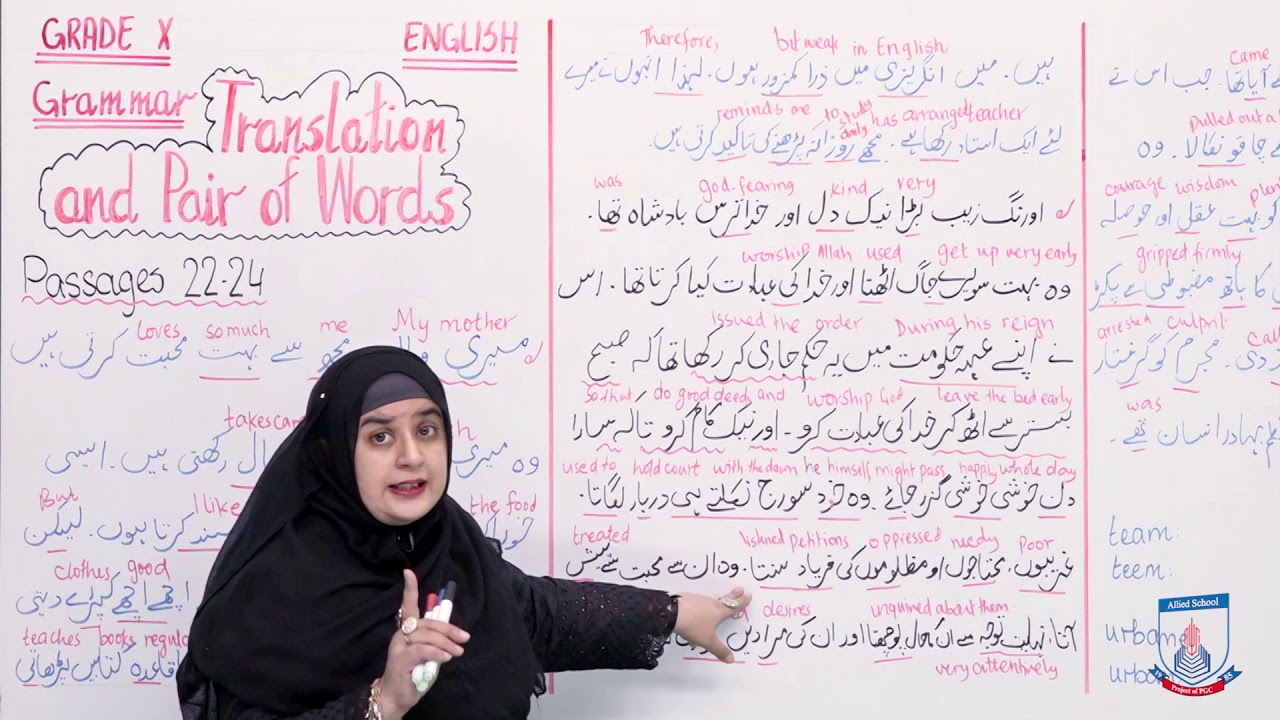 GRADE X
ENGLISH
Grammar
Translation
and Pair of Words
Passages 22-24
loves so much me My mother
میری سے بہت محبت کرتی ہیں
takes care
وہ میری رکھتی ہیں۔ ایسی
But I like the food
کرتا ہوں۔ لیکن
clothes good
اچھے اچھے کپڑے دیتی
teaches books
باقاعدہ کتابیں پڑھاتی
Therefore, bit weak in English
ہیں۔ میں انگریزی میں ذرا کمزور ہوں۔ لہٰذا انہوں نے میرے
reminds me to study daily has arranged teacher
لئے ایک استاد رکھا ہے۔ مجھے روزانہ پڑھنے کی تاکید کرتی ہیں۔
was god-fearing kind very
اورنگ زیب بڑا نیک دل اور خدا ترس بادشاہ تھا۔
worship Allah used get up very early
وہ بہت سویرے جاگ اٹھتا اور خدا کی عبادت کیا کرتا تھا۔ اس
issued the order During his reign
نے اپنے عہد حکومت میں یہ حکم جاری کر رکھا تھا کہ صبح
so that do good deeds and worship God leave the bed early
بستر سے اٹھ کر خدا کی عبادت کرو۔ اور نیک کام کرو تاکہ سارا
used to hold court with the dawn he himself might pass happily whole day
دن خوشی خوشی گزر جائے۔ وہ خود سورج نکلتے ہی دربار لگاتا۔
treated listened petitions oppressed needy poor
غریبوں، محتاجوں اور مظلوموں کی فریاد سنتا۔ وہ ان سے محبت سے پیش
desires inquired about them
آتا، نہایت توجہ سے ان کا حال پوچھتا اور ان کی مرادیں
very attentively
came
آیا تھا۔ جب اس نے
pulled out a
چاقو نکالا۔ وہ
courage wisdom
کو بہت عقل اور حوصلہ
gripped firmly
کا ہاتھ مضبوطی سے پکڑ
arrested culprit
دی۔ مجرم کو گرفتار
was
بہادر انسان تھے۔
team:
teem:
Allied School
19 85
Project of PGC